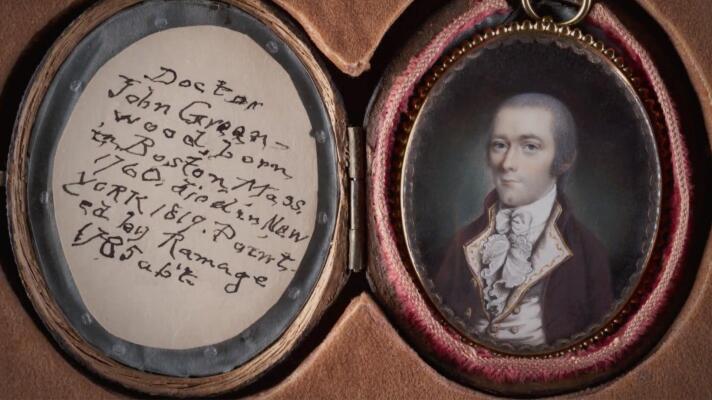 Doctor
John Green-
wood, born
in Boston, Mass.
1760, died in New
York 1819. Paint-
ed by Ramage
1785 abt.